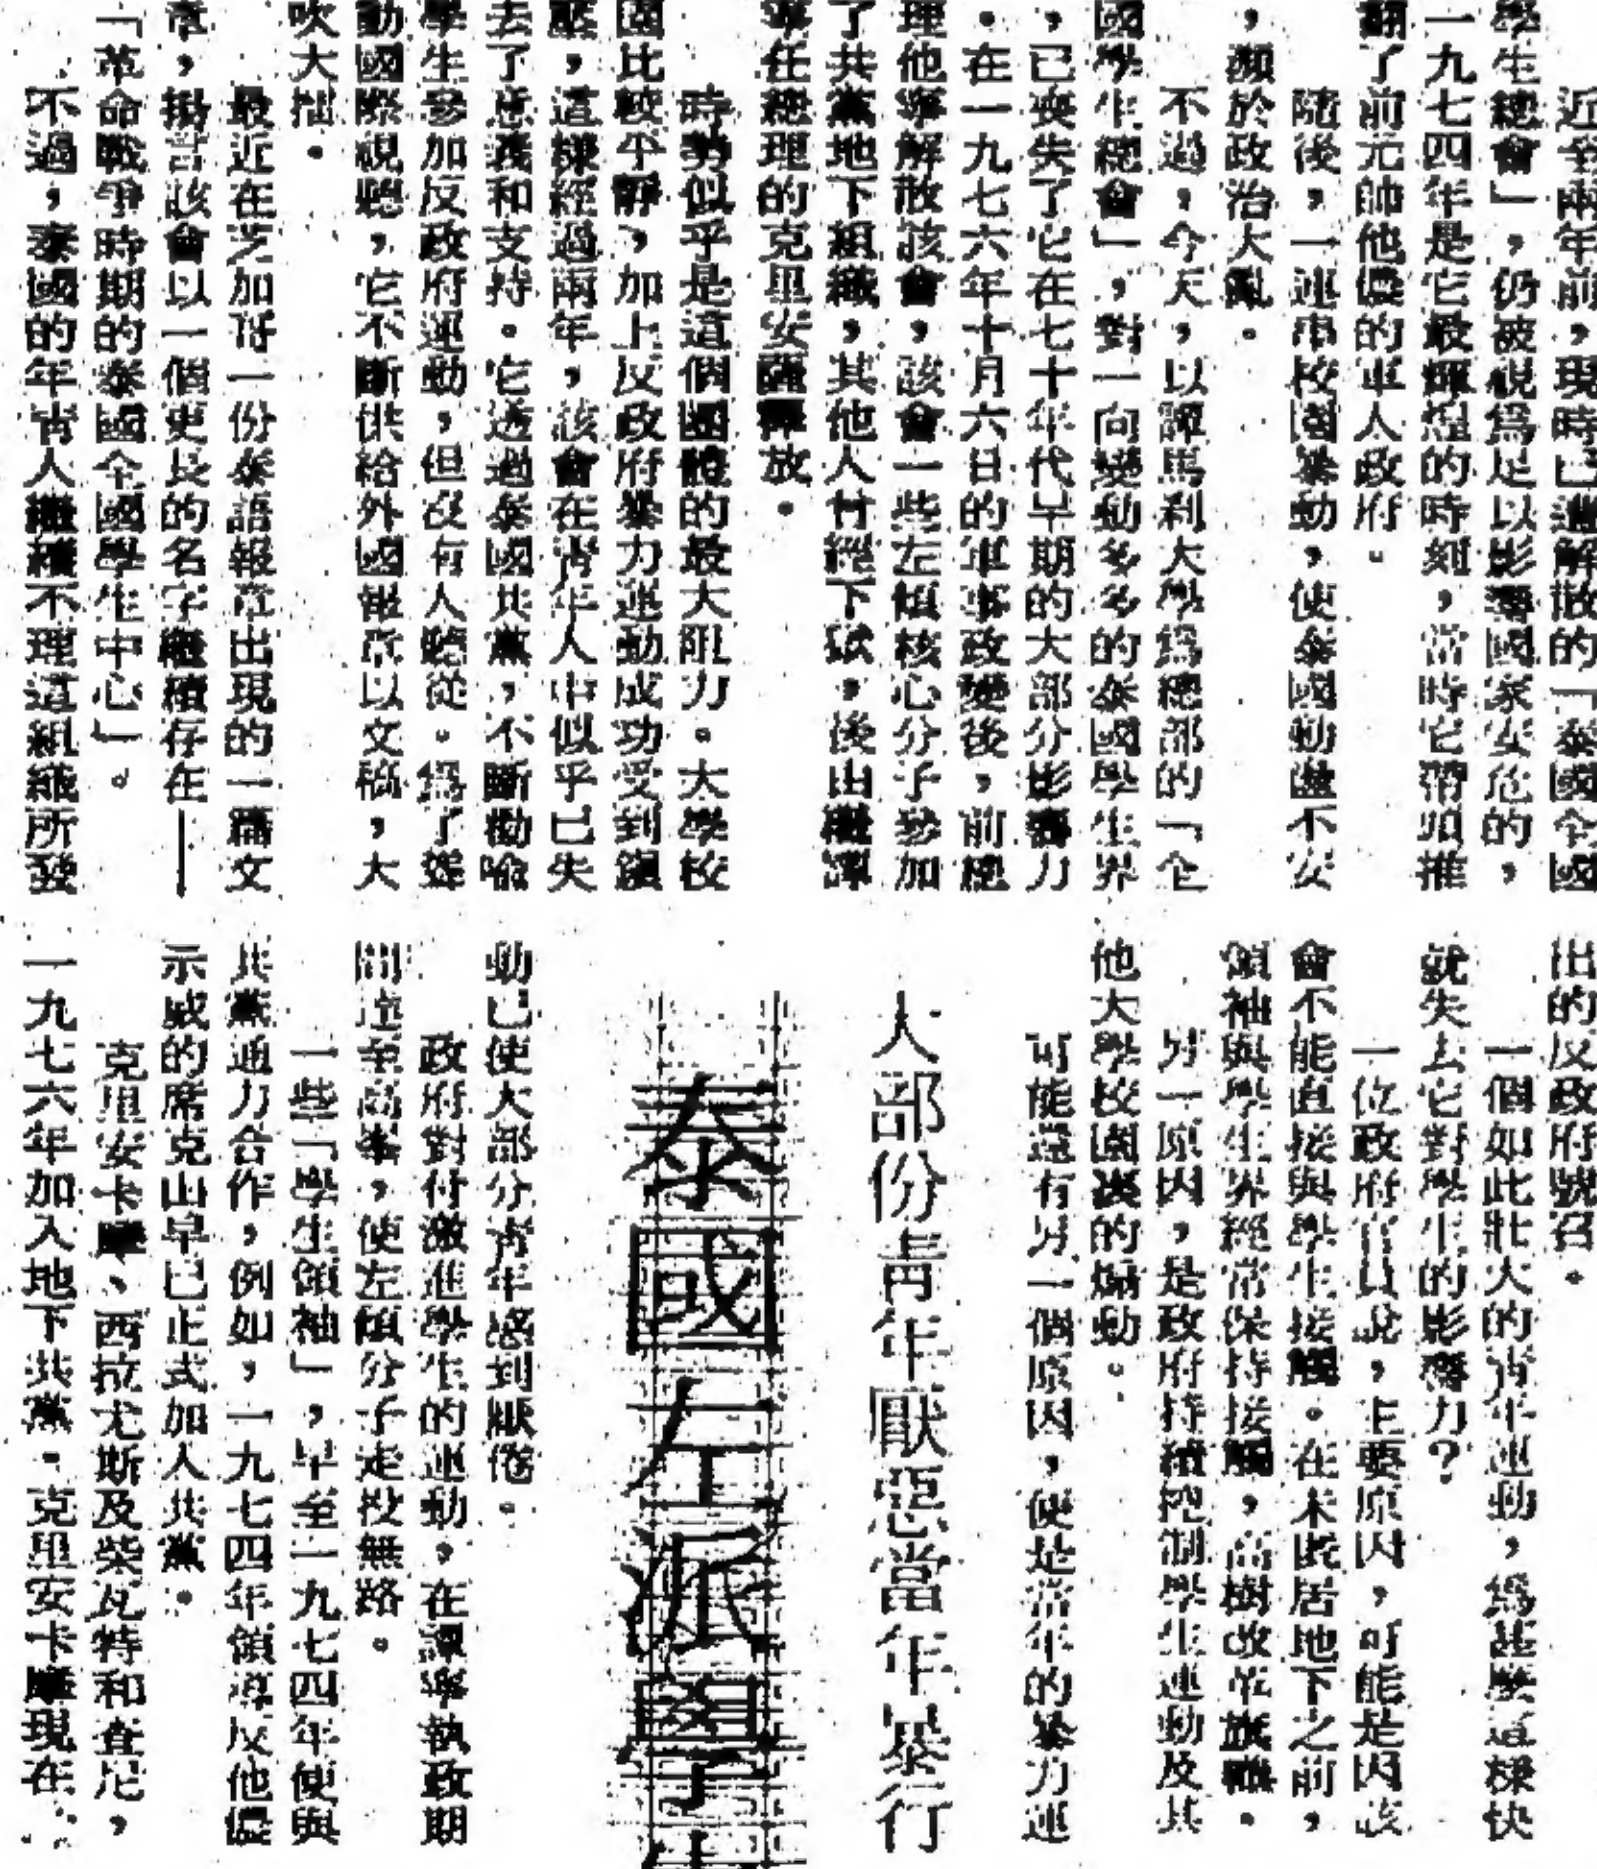 近至兩年前，現時已遭解散的「泰國全國
學生總會」，仍被視爲足以影響國家安危的，
一九七四年是它最輝煌的時刻，當時它帶頭推
翻了前元帥他儂的軍人政府。
隨後，一連串校園暴動，使泰國動盪不安
，瀕於政治大亂。
不過，今天，以譚馬利大學爲總部的「全
國學生總會」，對一向變動多多的泰國學生界
，已喪失了它在七十年代早期的大部分影響力
。在一九七六年十月六日的軍事政變後，前總
理他寧解散該會，該會一些左傾核心分子參加
了共黨地下組織，其他人廿經下獄，後由繼譚
寧任總理的克里安薩釋放。
時勢似乎是這個團體的最大阻力。大學校
園比較平靜，加上反政府暴力運動成功受到鎮
壓，這樣經過兩年，該會在靑年人中似乎已失
去了意義和支持。它透過泰國共黨，不斷勸喩
學生參加反政府運動，但沒有人聽從。爲了
動國際視聽，它不斷供給外國報章以文稿，大
吹大擂。
最近在芝加哥一份泰語報章出現的一篇文
章，揚言該會以一個更長的名字繼續存在——
「革命戰爭時期的泰國全國學生中心」。
不過，泰國的年靑人繼續不理這組織所發
出的反政府號召。
一個如此壯大的靑年運動，爲甚麼這樣快
就失去它對學生的影響力？
一位政府官員說，主要原因，可能是因該
會不能直接與學生接觸。在未匿居地下之前，
領袖與學生界經常保持接觸，高樹改革旗幟。
另一原因，是政府持續控制學生運動及其
他大學校園裏的煽動。
可能還有另一個原因，便是當年的暴力運
大部份靑年厭惡當年暴行
泰國左派學生
動已使大部分靑年感到厭倦。
政府對付激進學生的運動，在譚寧執政期
間達至高峯，使左傾分子走投無路。
一些「學生領袖」，早至一九七四年便與
共黨通力合作，例如，一九七四年領導反他儂
示威的席克山早已正式加入共黨。
克里安卡摩、西拉尤斯及柴瓦特和查尼，
一九七六年加入地下共黨。克里安卡摩現在